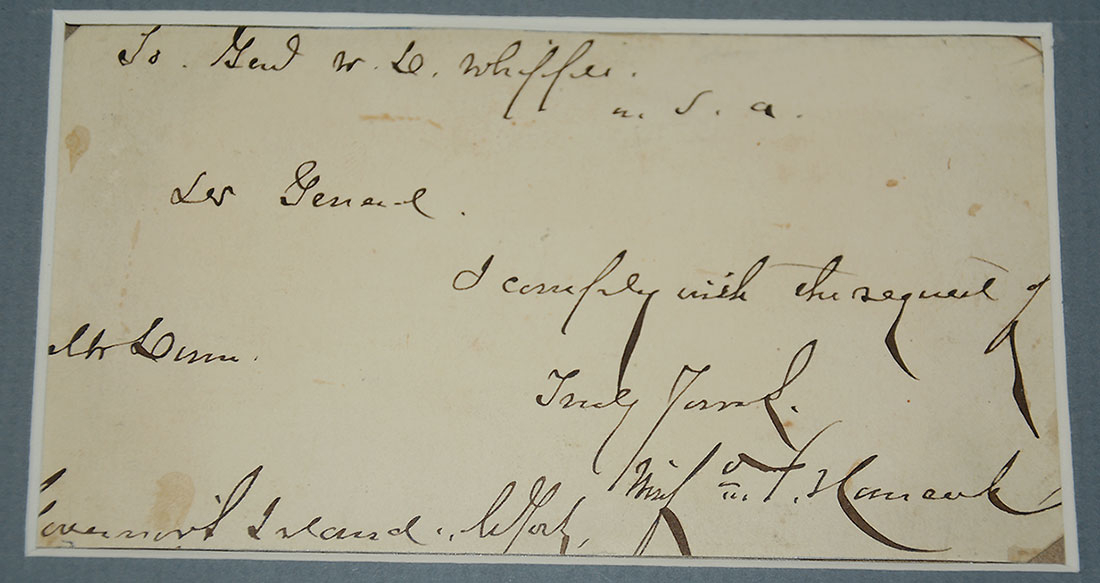 To. Genl W. D. Whipple.
U. S. A.
Dr General.
I comply with the request of
Mr
Truly Yours.
Winf S. Hancock
Governor's Island. N York,